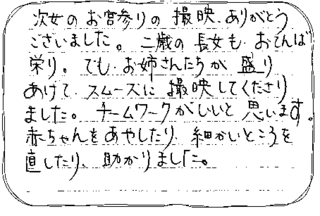 次女のお宮参りの撮映、ありがとう
ございました。二歳の長女も、おてんば
栄り。でも、お姉さんたちが盛り
あげて、スムーズに撮映してくださり
ました。チームワークがいいと思います。
赤ちゃんをあやしたり、細かいところを
直したり、助かりました。